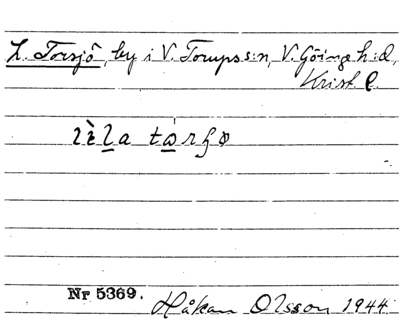 L. Torsjö, by i V. Torups s:n, V. Göinge h:d,
Krist. l.
lìla tɷ́rʃø
Nr 5369. Håkan Olsson 1944